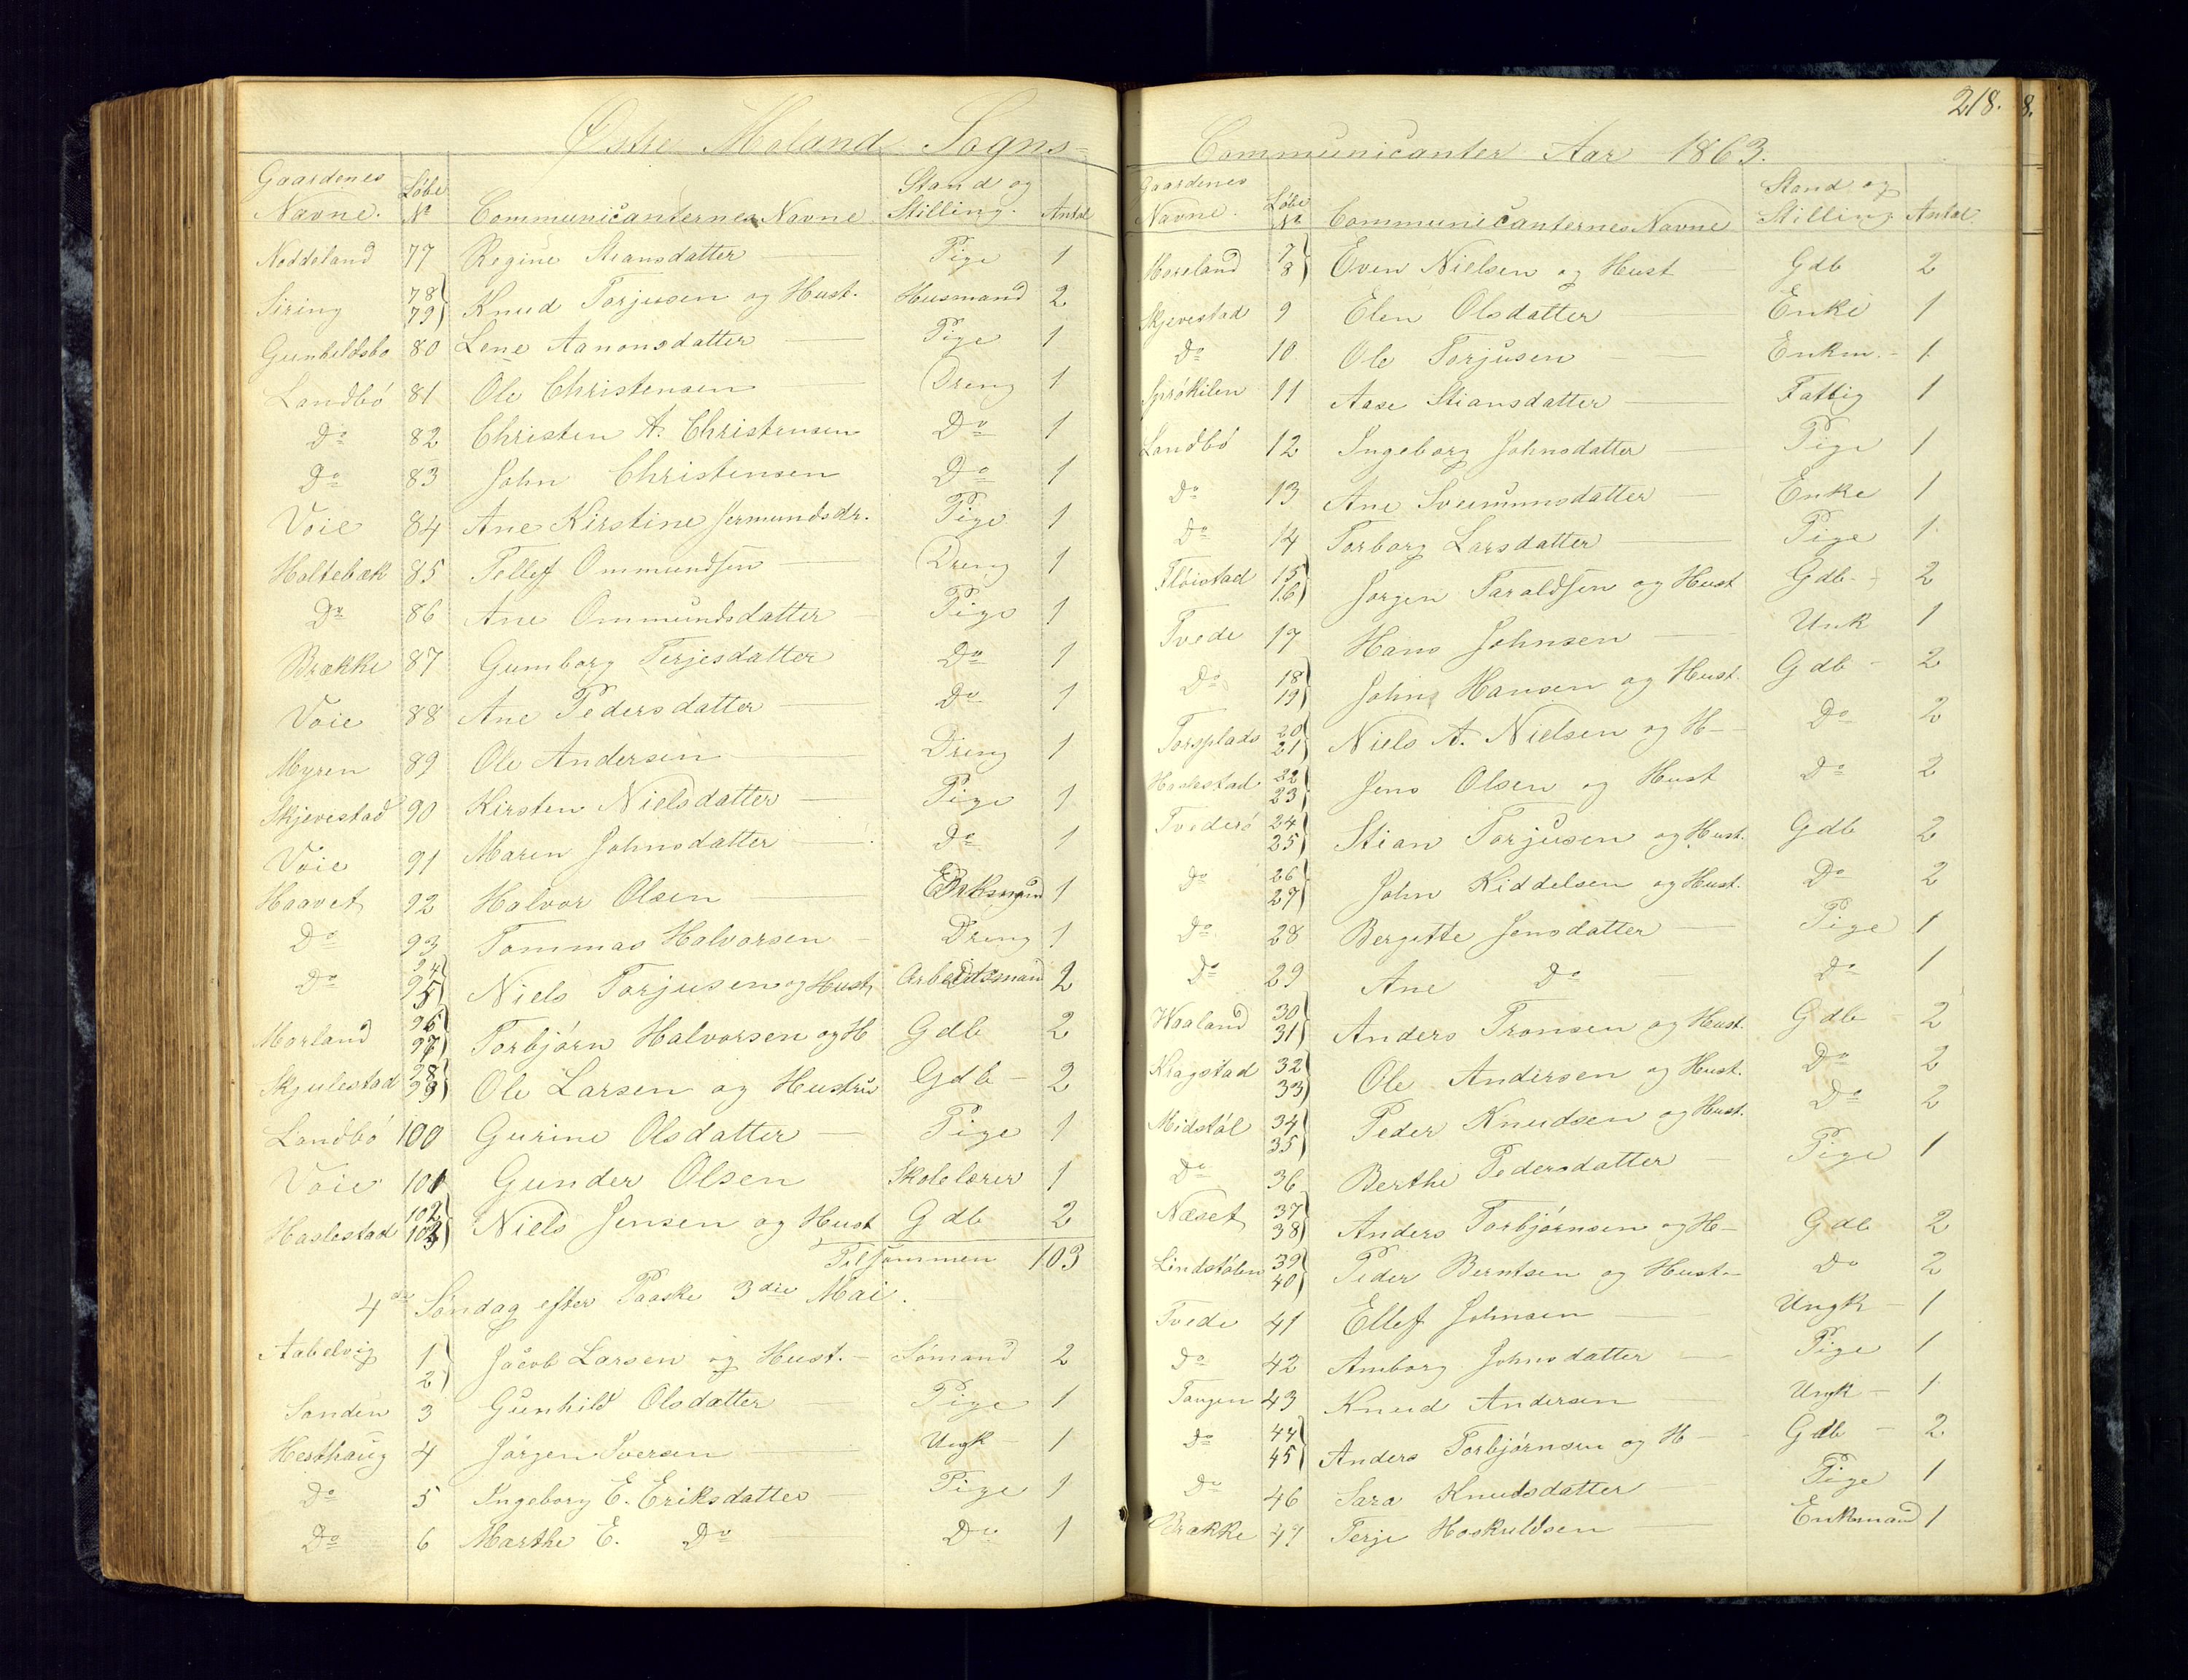 Østre Moland Sogns=
Gaardenes Navne. Løbe No Communicanternes Navne Stand og Stilling. Antal
Neddeland 77 Regine Stiansdatter Pige 1
Siring 78 79 Knud Torjusen og Hust. Husmand 2
Gunhildsbo 80 Lene Aanonsdatter Pige 1
Landbö 81 Ole Christensen Dreng 1
Do 82 Christen A. Christensen Do 1
Do 83 John Christensen Do 1
Voie 84 Ane Kirstine Jermundsdr. Pige 1
Holtebæk 85 Tellef Ommundsen Dreng 1
Do 86 Ane Ommundsdatter Pige 1
Brække 87 Gumborg Terjesdatter Do 1
Voie 88 Ane Pedersdatter Do 1
Myren 89 Ole Andersen Dreng 1
Skjevestad 90 Kirsten Nielsdatter Pige 1
Voie 91 Maren Johnsdatter Do 1
Haavet 92 Halvor Olsen 1
Do 93 Tommas Halvorsen Dreng 1
Do 94 95 Niels Torjusen og Hust. Arbeidsmand 2
Morland 96 97 Torbjörn Halvorsen og H Gdb 2
Skjulestad 98 99 Ole Larsen og Hustru Gdb 2
Landbö 100 Gurine Olsdatter Pige 1
Voie 101 Gunder Olsen Skolelærer 1
Haslestad 102 103 Niels Jensen og Hust Gdb 2
Tilsammen 103
4de Søndag efter Paaske 3die Mai.
Aabelvig 1 2 Jacob Larsen og Hust. Sömand 2
Sanden 3 Gunhild Olsdatter Pige 1
Hesthaug 4 Jörgen Iversen Ungk 1
Do 5 Ingeborg E. Eriksdatter Pige 1
Do 6 Marthe E. Do Do 1
218.
Communicanter Aar 1863.
Gaardenes Navne. Løbe No Communicanternes Navne Stand og Stilling Antal
Moreland 7 8 Even Nielsen og Hust Gdb 2
Skjevestad 9 Elen Olsdatter Enke 1
Do 10 Ole Torjusen Enkm. 1
Sprökilen 11 Aase Stiansdatter Fattig 1
Landbö 12 Ingeborg Johnsdatter Pige 1
Do 13 Ane Sveinunsdatter Enke 1
Do 14 Torborg Larsdatter Pige 1
Flöistad 15 16 Jorgen Taraldsen og Hust Gdb 2
Tvede 17 Hans Johnsen Unk 1
Do 18 19 John Hansen og Hust. Gdb 2
Torsplads 20 21 Niels A. Nielsen og H Do 2
Haslestad 22 23 Jens Olsen og Hust Do 2
Tvederö 24 25 Stian Torjusen og Hust. Gdb 2
Do 26 27 John Kiddelsen og Hust. Do 2
Do 28 Bergitte Jensdatter Pige 1
Do 29 Ane Do Do 1
Waaland 30 31 Anders Tronsen og Hust. Gdb 2
Kragstad 32 33 Ole Andersen og Hust. Do 2
Midstöl 34 35 Peder Knudsen og Hust. Do 2
Do 36 Berthe Pedersdatter Pige 1
Næset 37 38 Anders Torbjörnsen og H Gdb 2
Lindstölen 39 40 Peder Berntsen og Hust Do 2
Tvede 41 Ellef Johnsen Ungk 1
Do 42 Amborg Johnsdatter Pige 1
Tangen 43 Knud Andersen Ungk 1
Do 44 45 Anders Torbjörnsen og H Gdb 2
Do 46 Sara Knudsdatter Pige 1
Brække 47 Terje Hoskuldsen Enkmand 1
8.